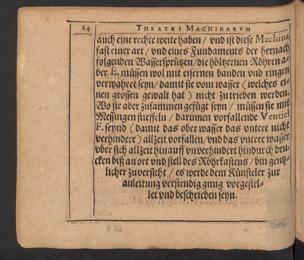 84 THEATRI MACHINARVM
auch eine rechte weite haben / vnd ist diese Machina
fast einer art / vnd eines Fundaments der hernach
folgenden Wassersprützen / die höltzernen Röhren a=
ber E. müssen wol mit eisernen banden vnd ringen
verwahret seyn / damit sie vom wasser (welches ei=
nen grossen gewalt hat) nicht zutrieben werden.
Wo sie aber zusammen gefügt seyn / müssen sie mit
Messingen stieffeln / darinnen vorfallende Ventiel
F. seynd (damit das ober wasser das vntere nicht
verhindere) allzeit vorfallen / vnd das vntere wasser
vber sich allzeit hinauff vnverhindert hindurch drü=
cken biß an ort vnd stell des Röhrkastens / bin gentz=
licher zuversicht / es werde dem Künsteler zur
anleitung verstendig gnug vorgestel=
let vnd beschrieben seyn.